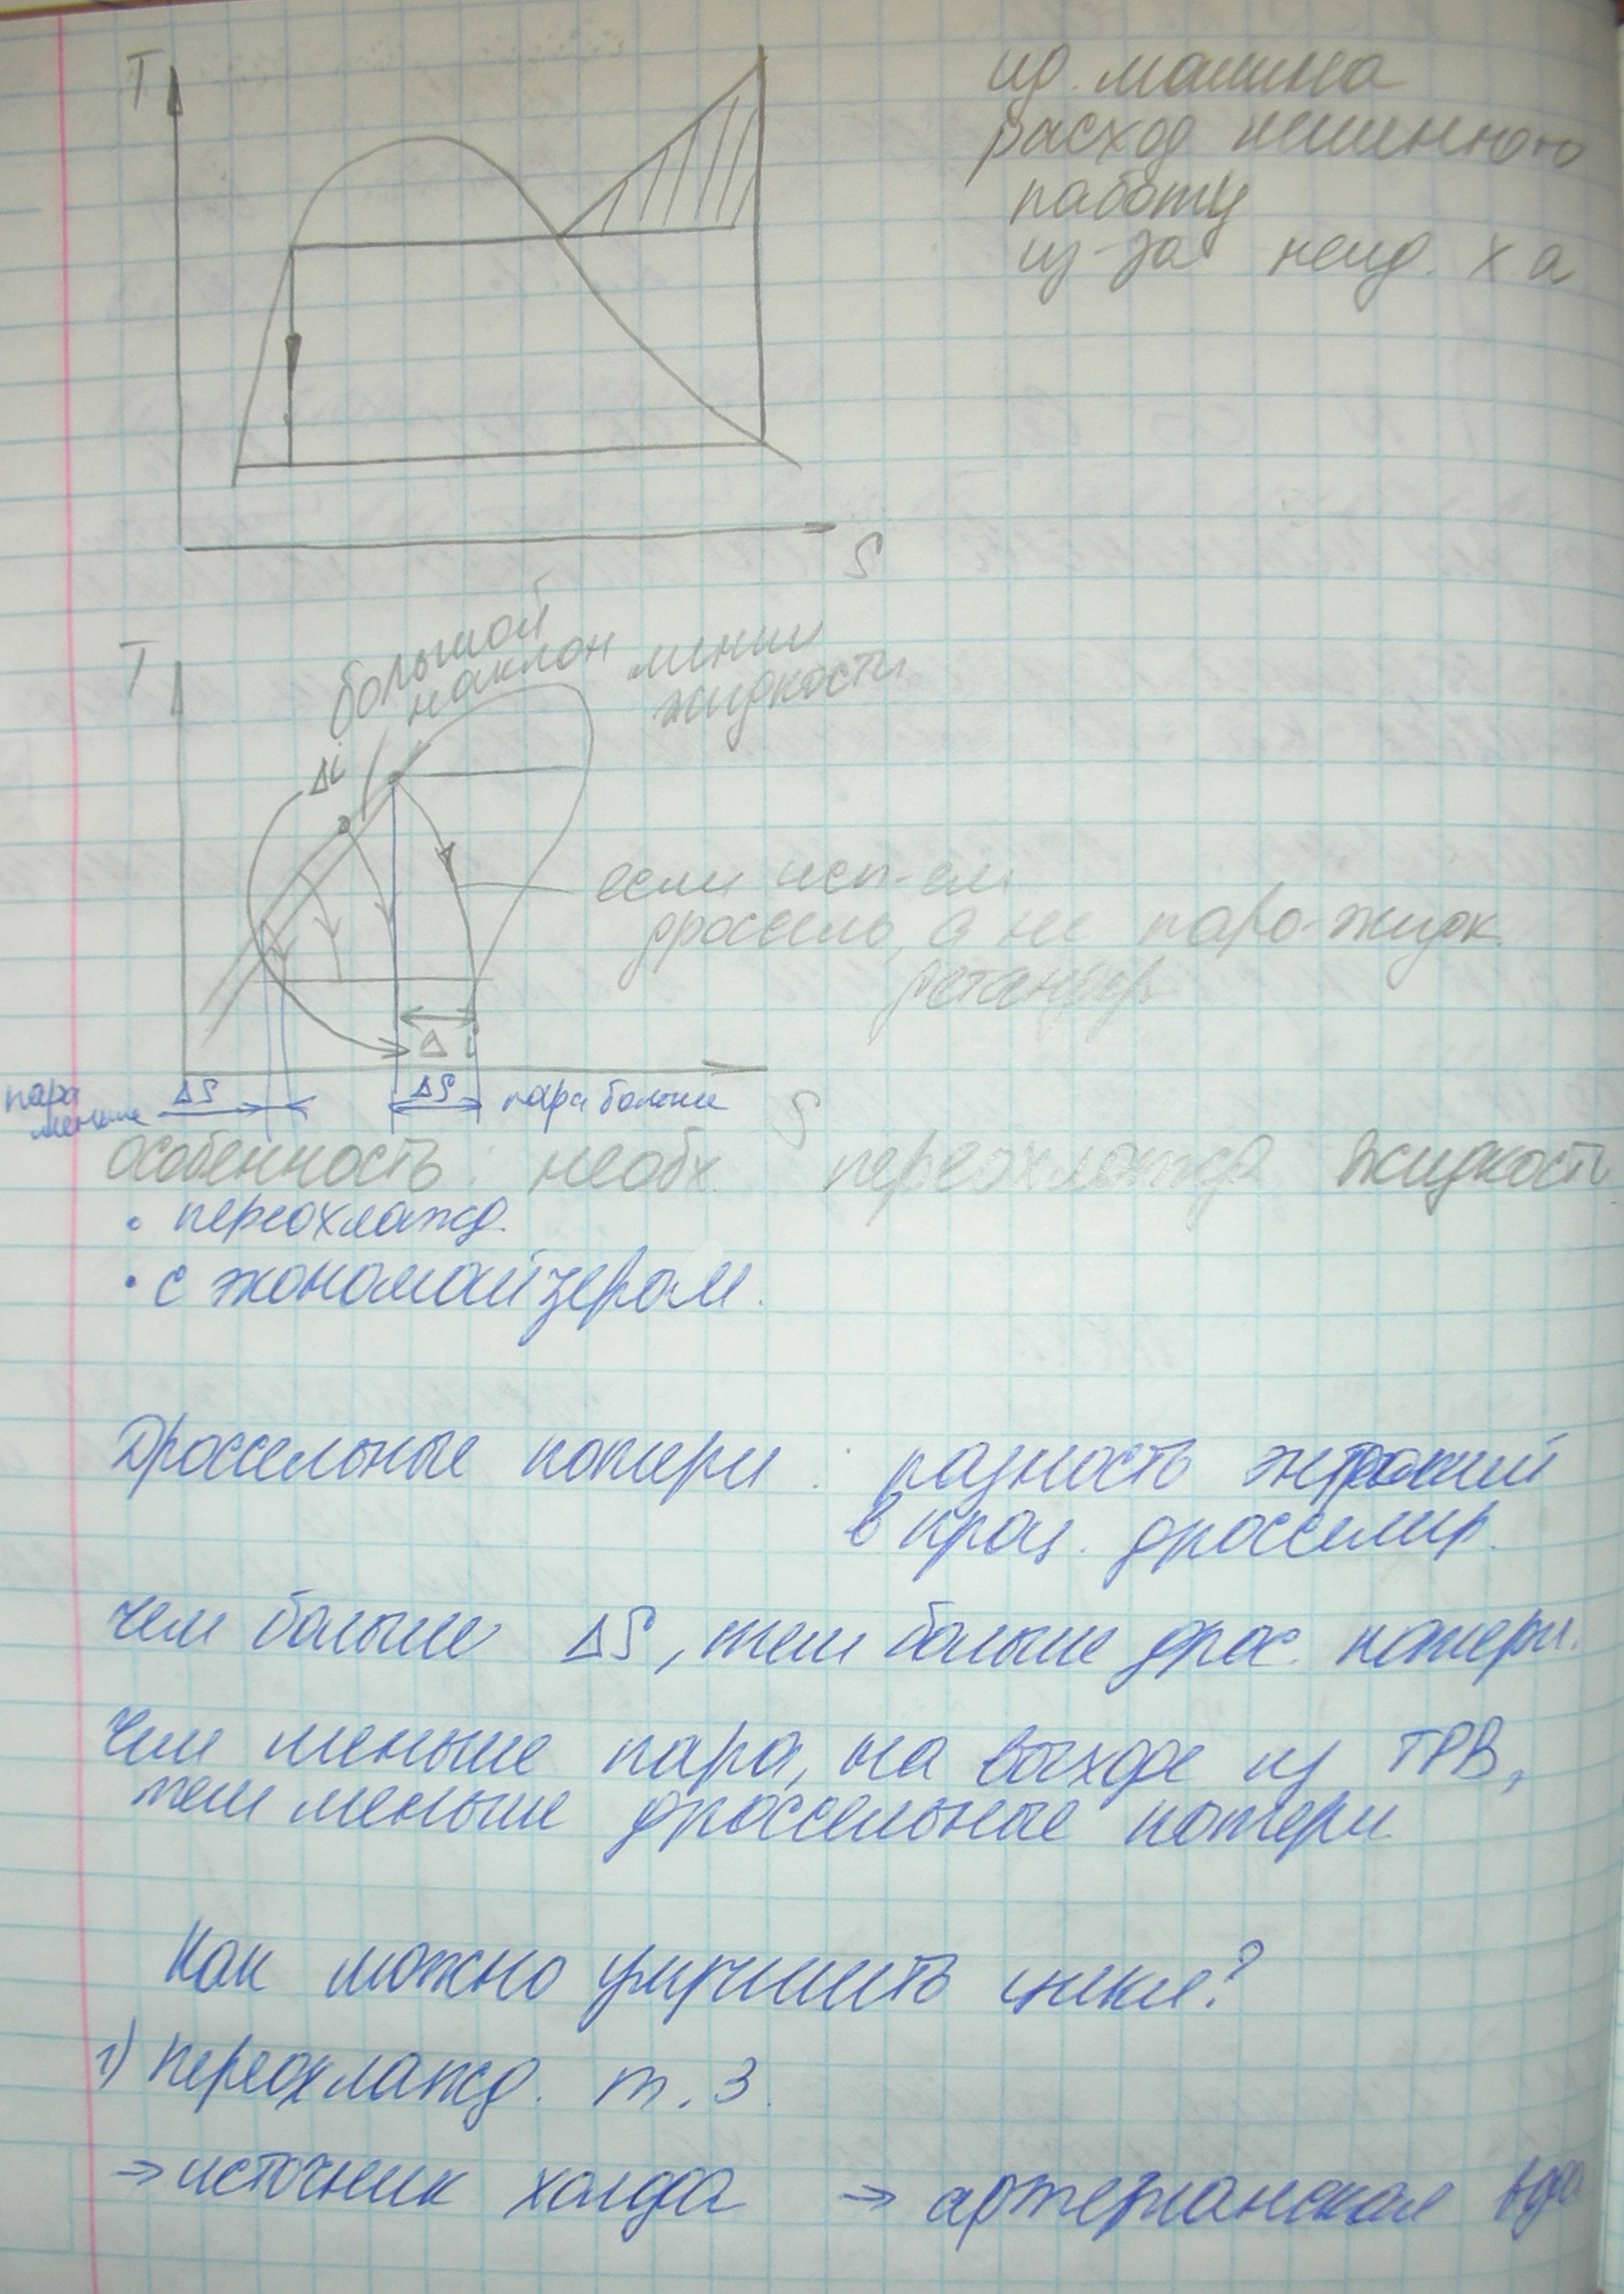 T
ид. машина
расход лишнюю
работу
из-за неид. х.а
S
T
большой
наклон линии
жидкости
Δi
если исп-ем
дроссель, а не паро-жидк.
детандер
Δi
пара
меньше
ΔS
ΔS
пара больше
S
особенность: необх. переохлажд жидкости
• переохлажд.
• с экономайзером.
Дроссельные потери: разность энтропий
в проц. дросселир.
чем больше ΔS, тем больше дрос. потери.
Чем меньше пара, на выходе из ТРВ,
тем меньше дроссельные потери
Как можно улучшить цикл?
1) Переохлажд. т. 3.
→ источник холода → артезианская вода